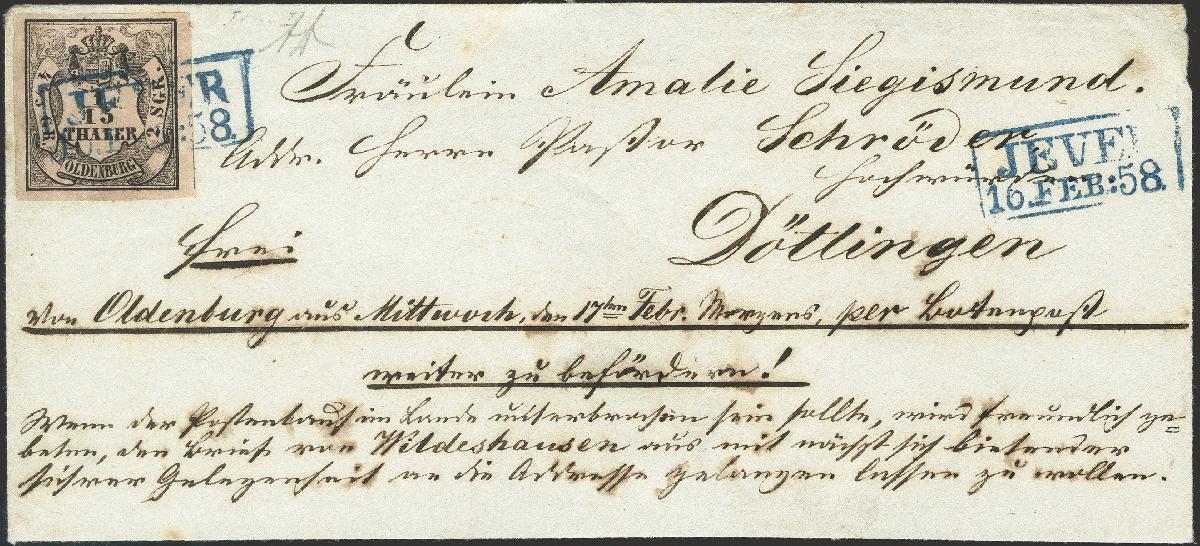 JEVER
16.FEB:58.
1/15
THALER
2 SGR.
OLDENBURG
Fräulein Amalie Siegismund.
Addr. Herrn Pastor Schröder
Hochwürden
JEVER
16.FEB:58.
Döttlingen
frei
von Oldenburg aus Mittwoch, den 17ten Febr. Morgens, per Botenpost
weiter zu befördern!
Wenn der Postenlauf im Lande unterbrochen sein sollte, wird freundlich ge=
beten, den Brief von Wildeshausen aus mit nächst sich bietender
sichrer Gelegenheit an die Addresse gelangen lassen zu wollen.